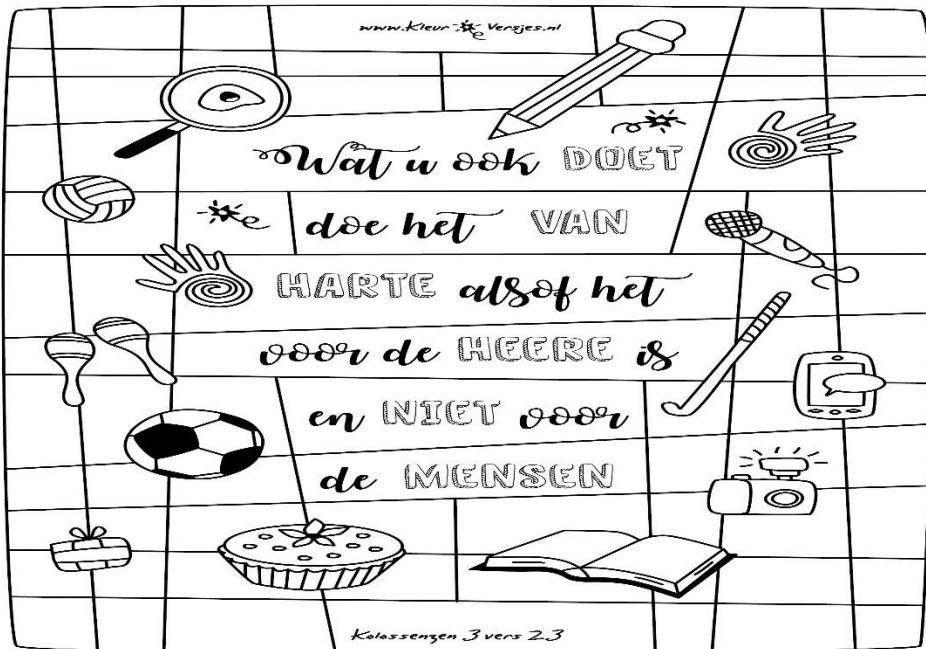 www.Kleur Versjes.nl
Wat u ook DOET
doe het VAN
HARTE alsof het
voor de HEERE is
en NIET voor
de MENSEN
Kolossenzen 3 vers 23